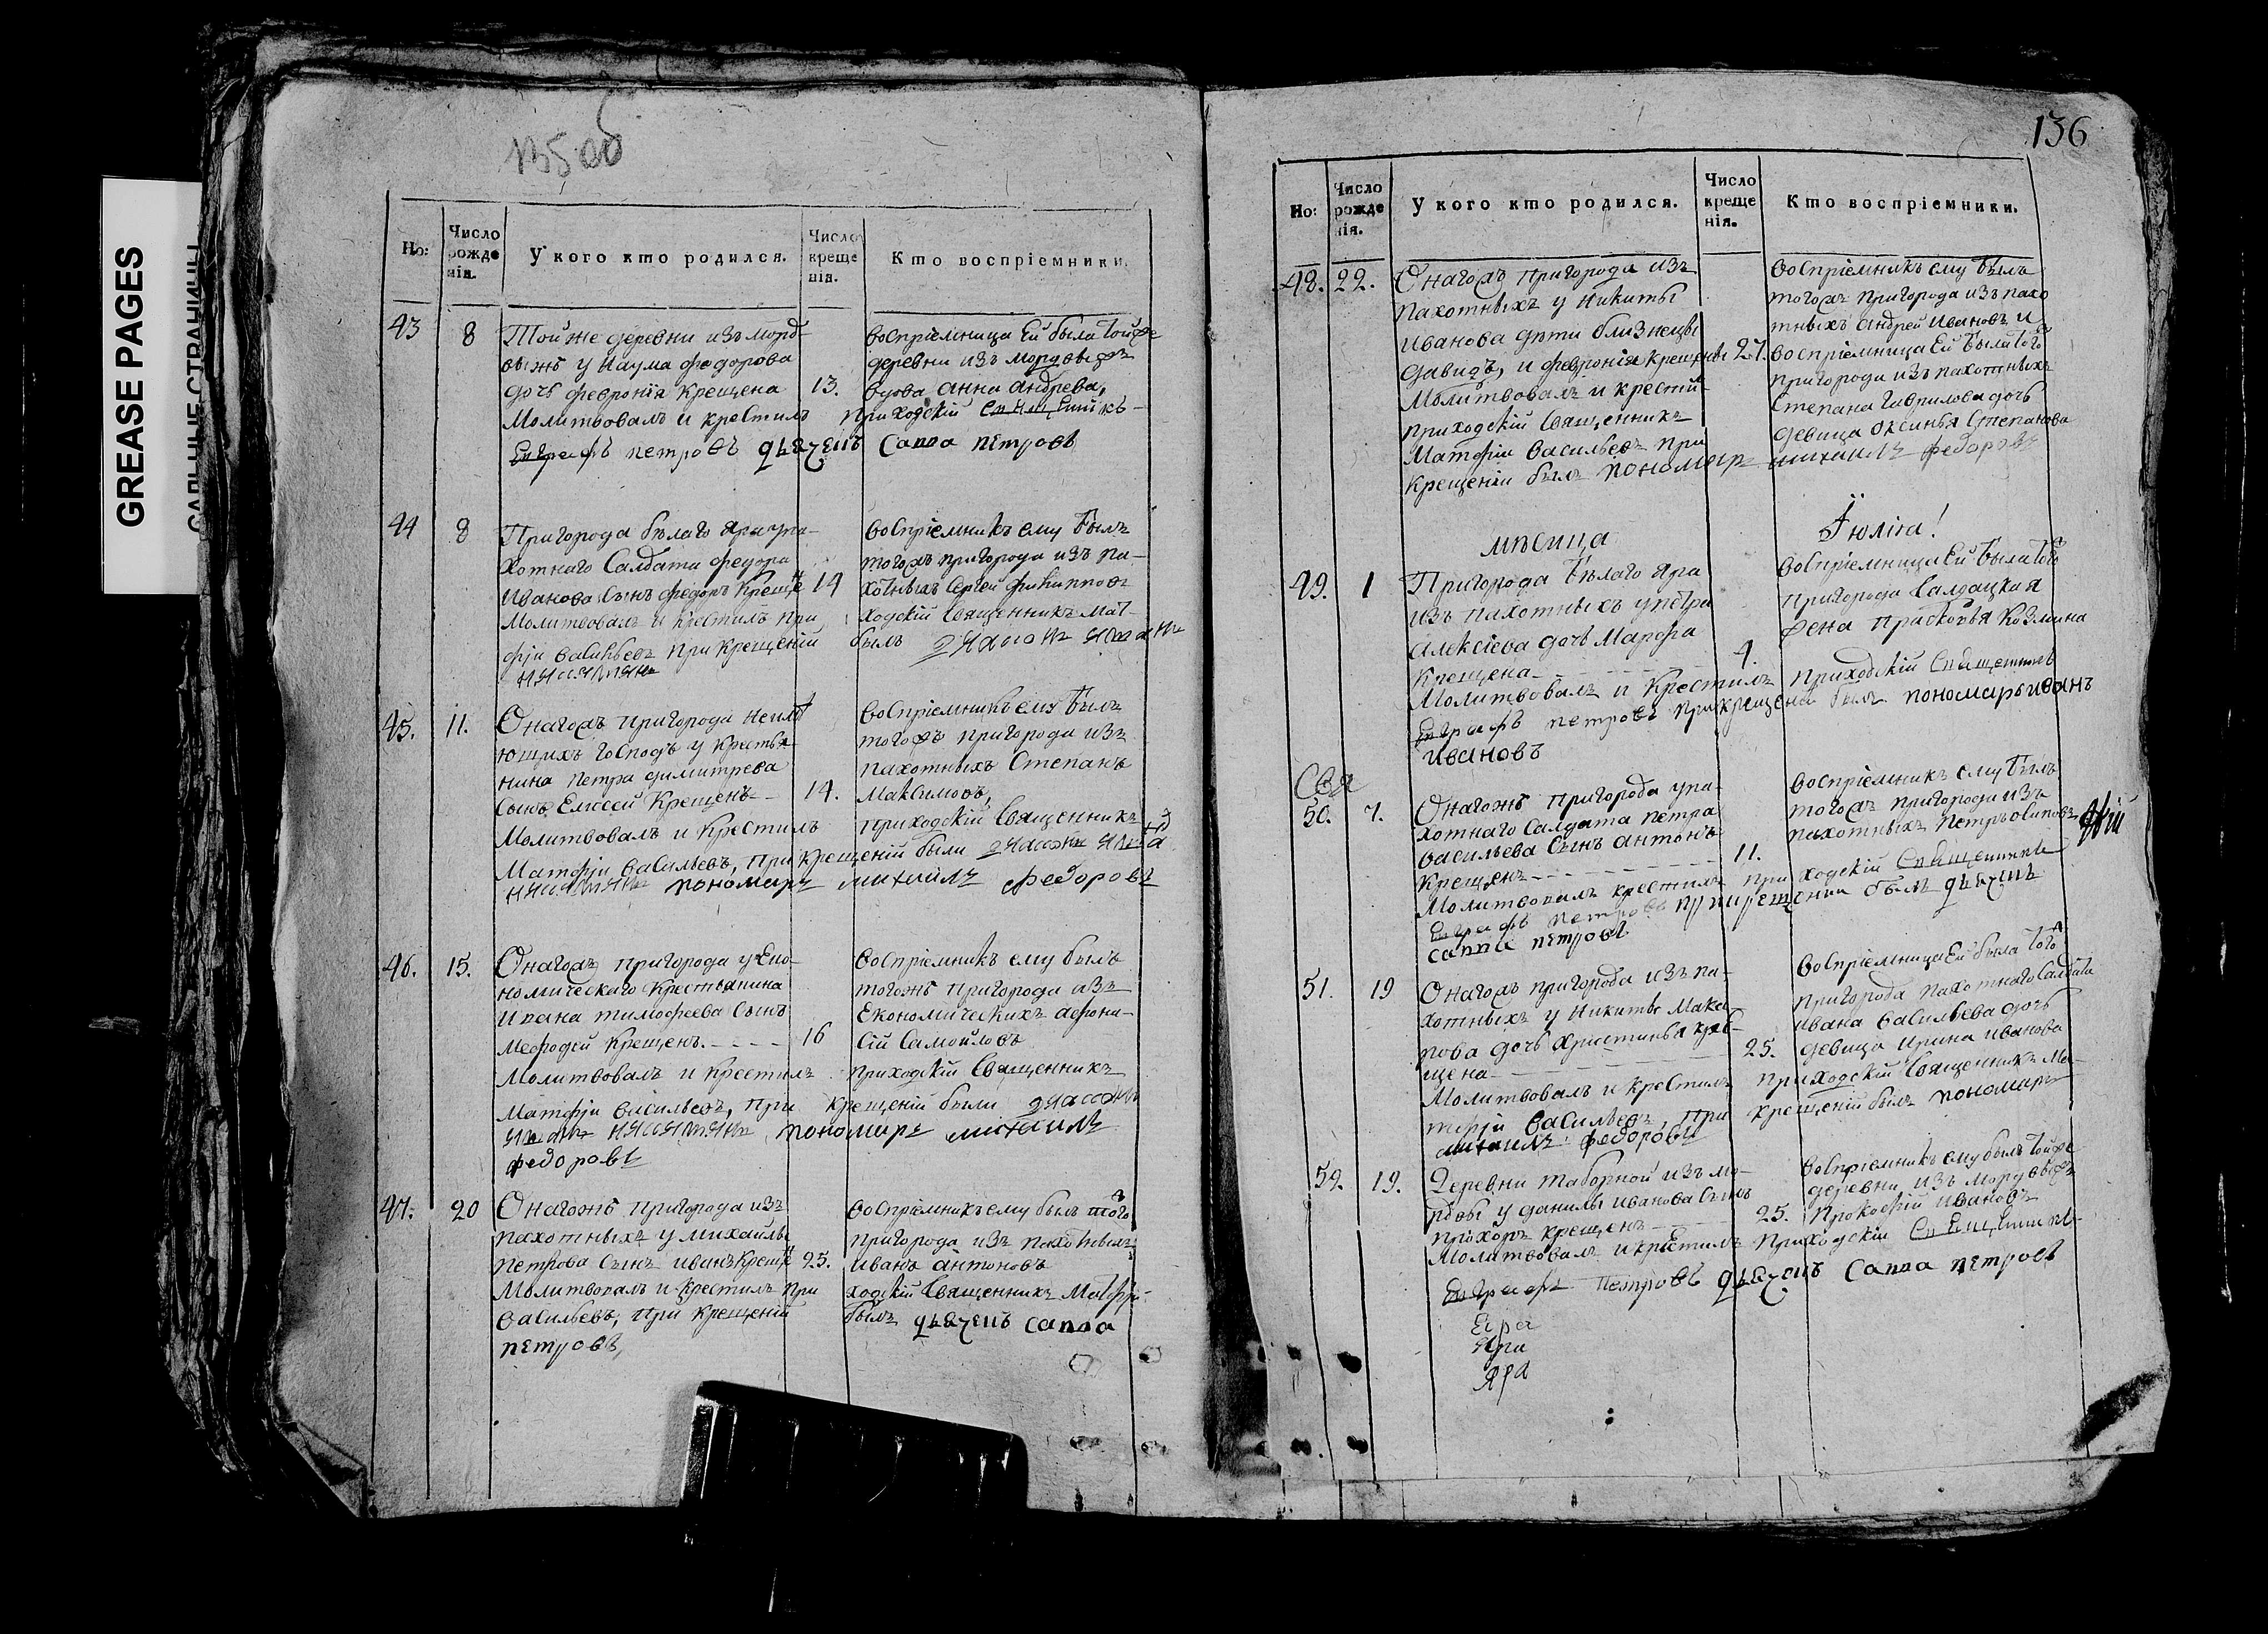 GREASE PAGES
САЛЬНЫЕ СТРАНИЦЫ
135 об
Но:
Число рожденія.
У кого кто родился.
Число крещенія.
Кто воспріемники.
43
8
Тойже деревни изъ морд-
выжъ у Наума Федорова
дочь Феврониія крещена
13.
Молитвовалъ и крестилъ
Петровъ
воспріемница ей была тойже
деревни изъ мордвы
вдова Анна Андрева,
приходскій
Савва Петровъ
44
8
Пригорода белаго Яра у па-
хотнаго Салдата Федора
Иванова Сынъ Федоръ Креще
14
Молитвовалъ и Крестилъ При
фіи Васильевъ При Крещеній
воспріемникъ ему былъ
тогожъ пригорода изъ па-
хотныхъ Сергей Филипповъ
ходскій Священникъ Мат-
былъ
45.
11.
Онагожъ пригорода неимѣ
ющихъ господъ у Крестья
нина Петра Димитрева
Сынъ Елисей Крещенъ
14.
Молитвовалъ и Крестилъ
Матфіи Васильевъ, При Крещеній были
пономарь Михаилъ Федоровъ
воспріемникъ ему былъ
тогожъ пригорода изъ
пахотныхъ Степанъ
Максимовъ,
приходскій Священникъ
46.
15.
Онагожъ пригорода у Еко-
номическаго Крестьянина
Ивана Тимофеева Сынъ
Мефодій Крещенъ.
16
Молитвовалъ и Крестилъ
Матфіи Васильевъ, При Крещеній были
пономарь Михаилъ
Федоровъ
воспріемникъ ему былъ
тогожъ пригорода изъ
Економическихъ Афона-
сій Самойловъ
приходскій Священникъ
47.
20
Онагожъ пригорода изъ
пахотныхъ у Михайлы
Петрова Сынъ Иванъ Креще
25.
Молитвовалъ и Крестилъ При
Васильевъ, При Крещеній
Петровъ,
воспріемникъ ему былъ того
пригорода изъ пахотныхъ
Иванъ Антоновъ
ходскій Священникъ Матфіи
былъ Савва
136
Но:
Число рожденія.
У кого кто родился.
Число крещенія.
Кто воспріемники.
48.
22.
Онагожъ пригорода изъ
пахотныхъ у Никиты
Иванова дѣти близнецы
Давидъ, и Февронія крещены
27.
Молитвовалъ и крестил
приходскій Священникъ
Матфіи Васильевъ При
Крещеніи былъ пономарь Михаилъ Федоровъ
воспріемникъ ему былъ
тогожъ пригорода изъ пахо
тныхъ Андрей Ивановъ и
воспріемница Ей была того
пригорода изъ пахотныхъ
Степана Гаврилова дочь
девица Оксинья Степанова
мѣсяца
Іюліа!
49.
1
Пригорода Бѣлаго Яра
изъ пахотныхъ у Петра
Алексіева дочь Марфа
Крещена
4.
Молитвовалъ и Крестилъ
Петровъ при крещеніи былъ пономарь Иванъ
Ивановъ
воспріемница Ей была того
пригорода Салдацкая
жена Прасковья Козмина
приходскій Священникъ
50.
7.
Онагожъ пригорода у па-
хотнаго Салдата Петра
Васильева Сынъ Антонъ
Крещенъ
11.
Молитвовалъ крестилъ При
Петровъ при крещении былъ
Савва Петровъ
воспріемникъ ему былъ
тогожъ пригорода изъ
пахотныхъ Петръ Осиповъ
ходскій Священникъ
51.
19
Онагожъ пригорода изъ па-
хотныхъ у Никиты Мака
рова дочь Христинья кре-
щена
25.
Молитвовалъ и крестилъ
тфіи Васильевъ, При крещеній былъ пономарь
Михаилъ Федоровъ
воспріемница Ей была того
пригорода пахотнаго Салдата
Ивана Васильева дочь
девица Ирина Иванова
приходскій Священникъ Ма-
52.
19.
Деревни Таборной изъ мо-
рдвы у Данилы Иванова Сынъ
Прохоръ Крещенъ
25.
Молитвовалъ и крестилъ Приходскій
Петровъ Савва Петровъ
воспріемникъ ему былъ тойже
деревни изъ мордвы
Прокофій Ивановъ
Яра